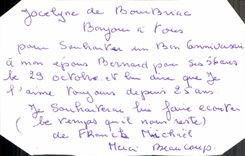 Jocelyne de BourBriac
Bonjour à tous
pour Souhaiter un Bon Anniversaire
à mon epous Bernard pour ses 56ans
le 29 octobre. et lui dire que Je
l'aime toujours depuis 23 ans
Je Souhaiterai lui faire ecouter
(le temps qu'il nous reste)
de Francis Michaël
Merci Beaucoup.